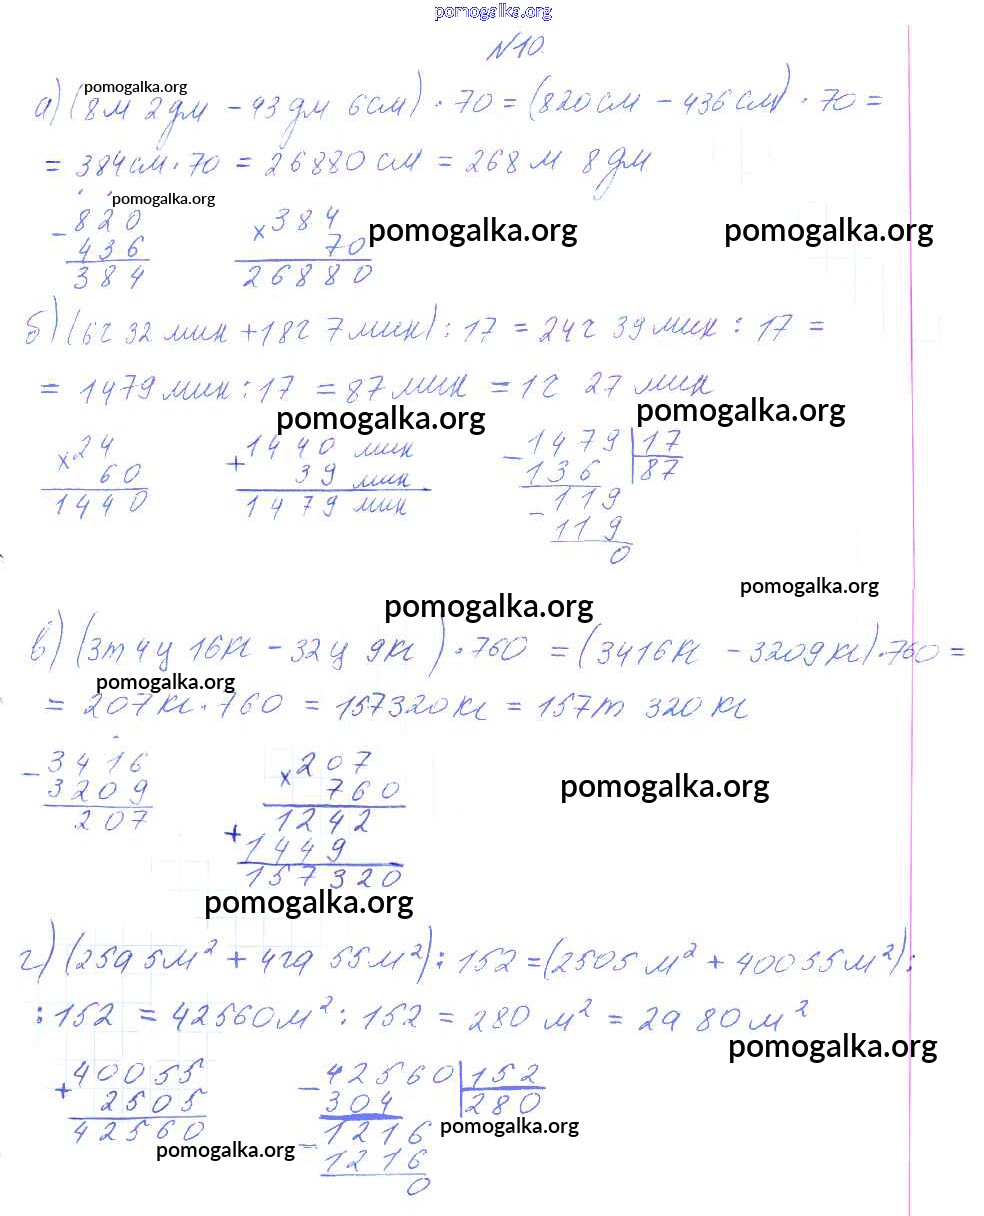 pomogalka.org
№10
pomogalka.org
а) (8м 2дм - 43дм 6см) · 70 = (820см - 436см) · 70 =
= 384см · 70 = 26880см = 268м 8дм
pomogalka.org
- 820
436
384
x 384
70
26880
pomogalka.org
pomogalka.org
б) (6ч 32мин + 18ч 7мин) : 17 = 24ч 39мин : 17 =
= 1479мин : 17 = 87мин = 1ч 27мин
pomogalka.org
pomogalka.org
x 24
60
1440
+ 1440 мин
39 мин
1479 мин
- 1479 | 17
136 | 87
- 119
119
0
pomogalka.org
pomogalka.org
в) (3т 4ц 16кг - 32ц 9кг) · 760 = (3416кг - 3209кг) · 760 =
pomogalka.org
= 207кг · 760 = 157320кг = 157т 320кг
- 3416
3209
207
x 207
760
+ 1242
1449
157320
pomogalka.org
pomogalka.org
г) (25а 5м² + 4га 55м²) : 152 = (2505м² + 40055м²) :
: 152 = 42560м² : 152 = 280м² = 2а 80м²
pomogalka.org
+ 40055
2505
42560
- 42560 | 152
304 | 280
- 1216
1216
0
pomogalka.org
pomogalka.org